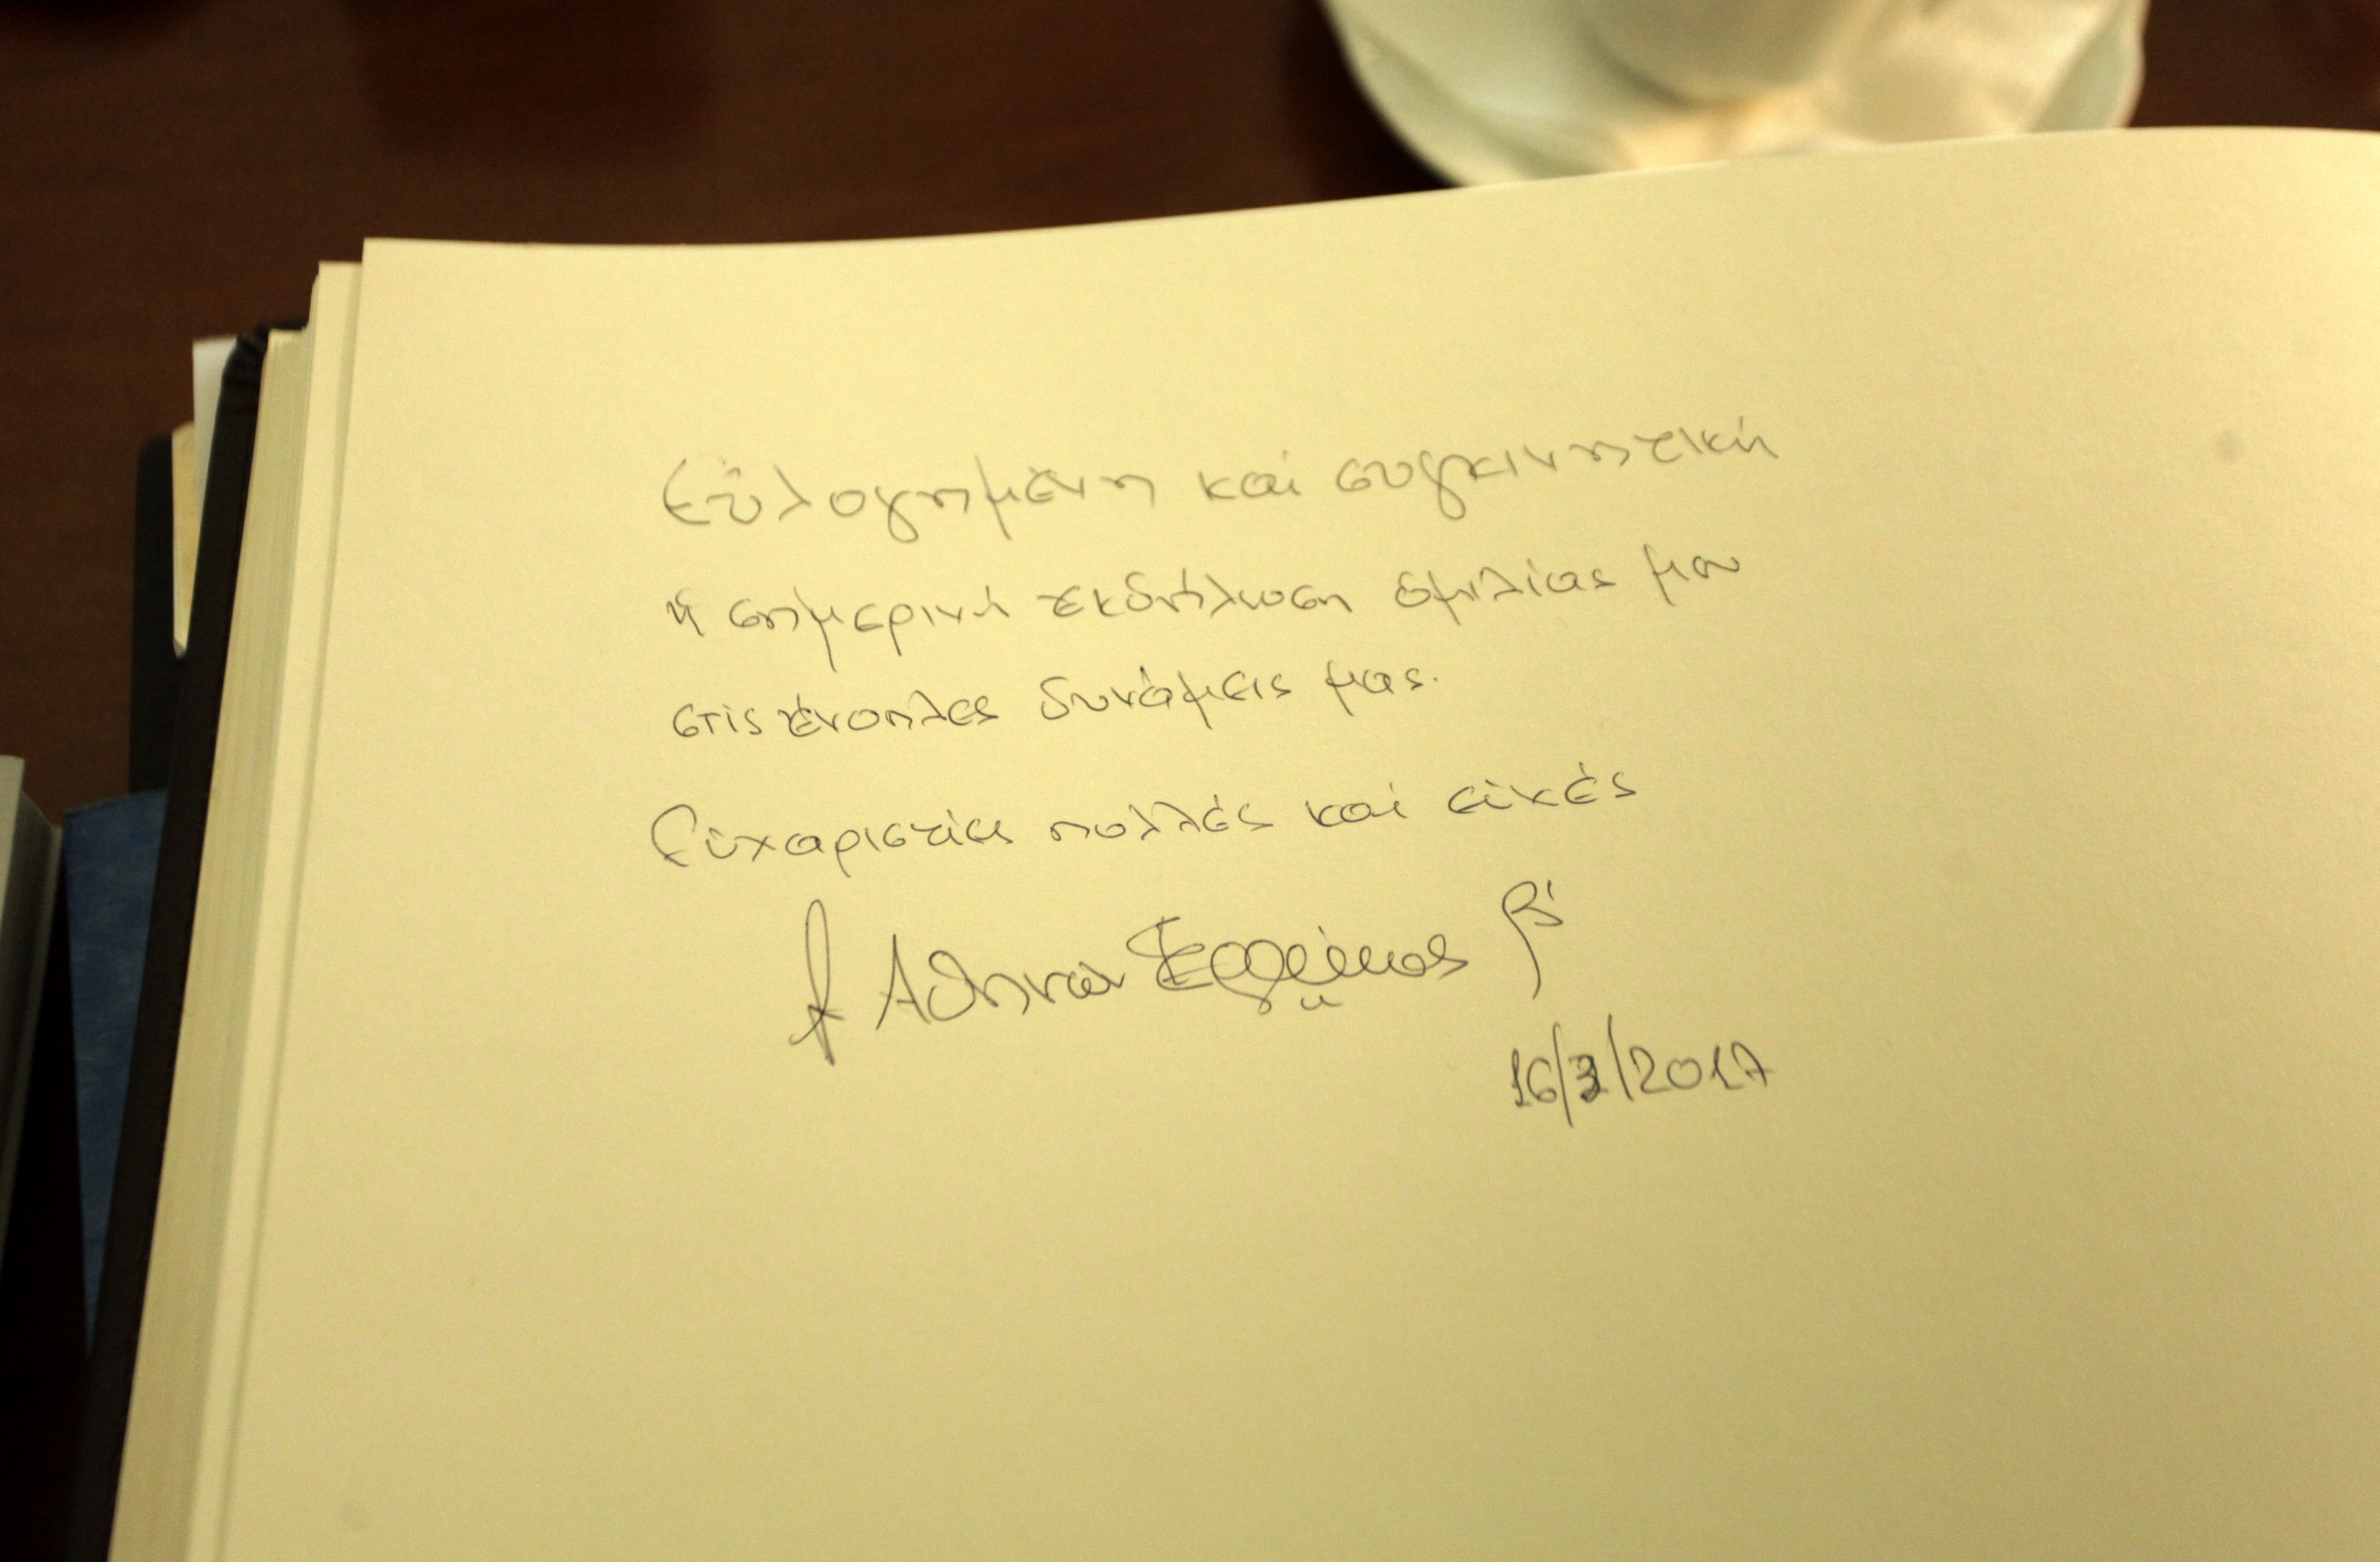 Εὐλογημένη καί συγκινητική
ἡ σημερινή ἐκδήλωση ὁμιλίας μου
στίς ἔνοπλες δυνάμεις μας.
Εὐχαριστίες πολλές καί εὐχές
† Ἀθηνῶν Ἱερώνυμος β'
16/3/2017